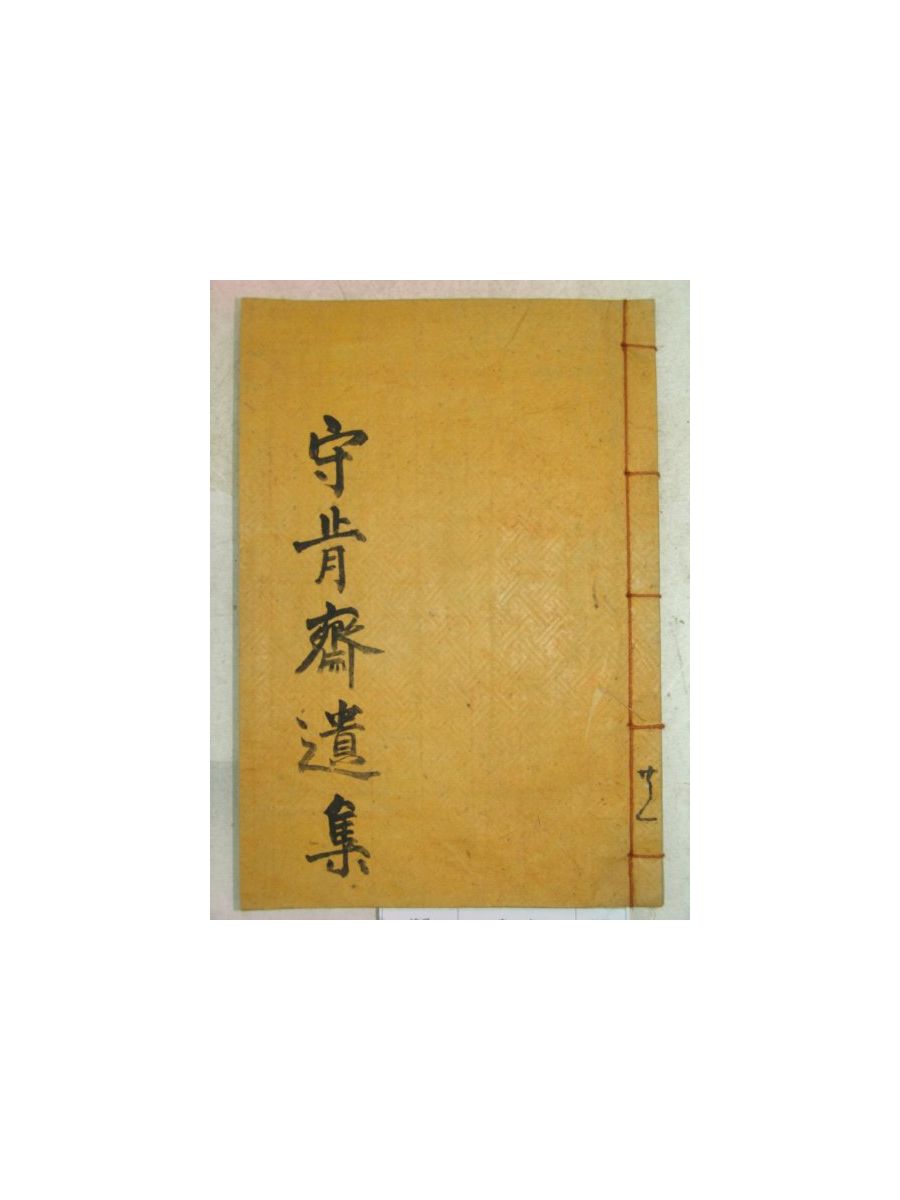 守肯齋遺集